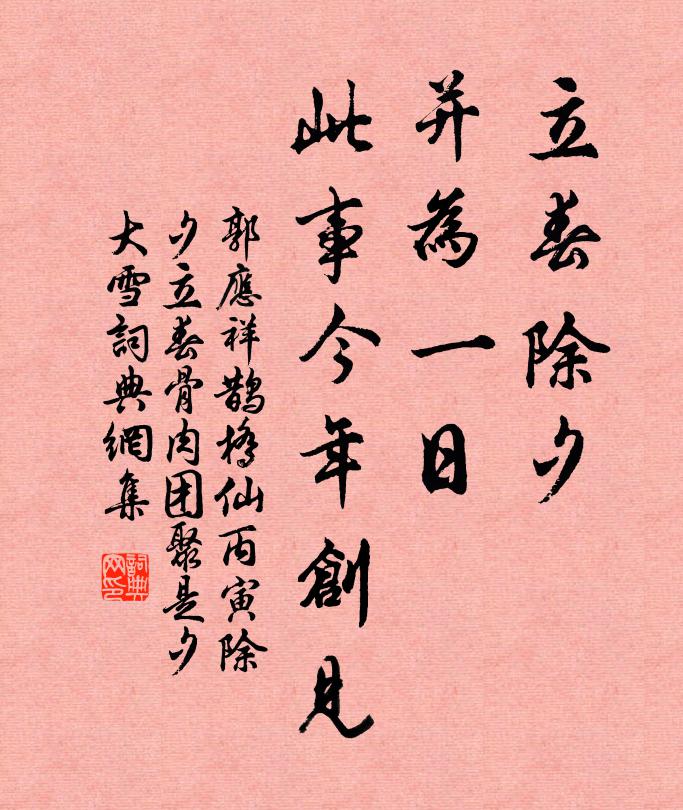 立春除夕
并為一日
此事今年創見
郭應祥鵲橋仙丙寅除
夕立春骨肉团聚是夕
大雪詞典網集
詞典
网印